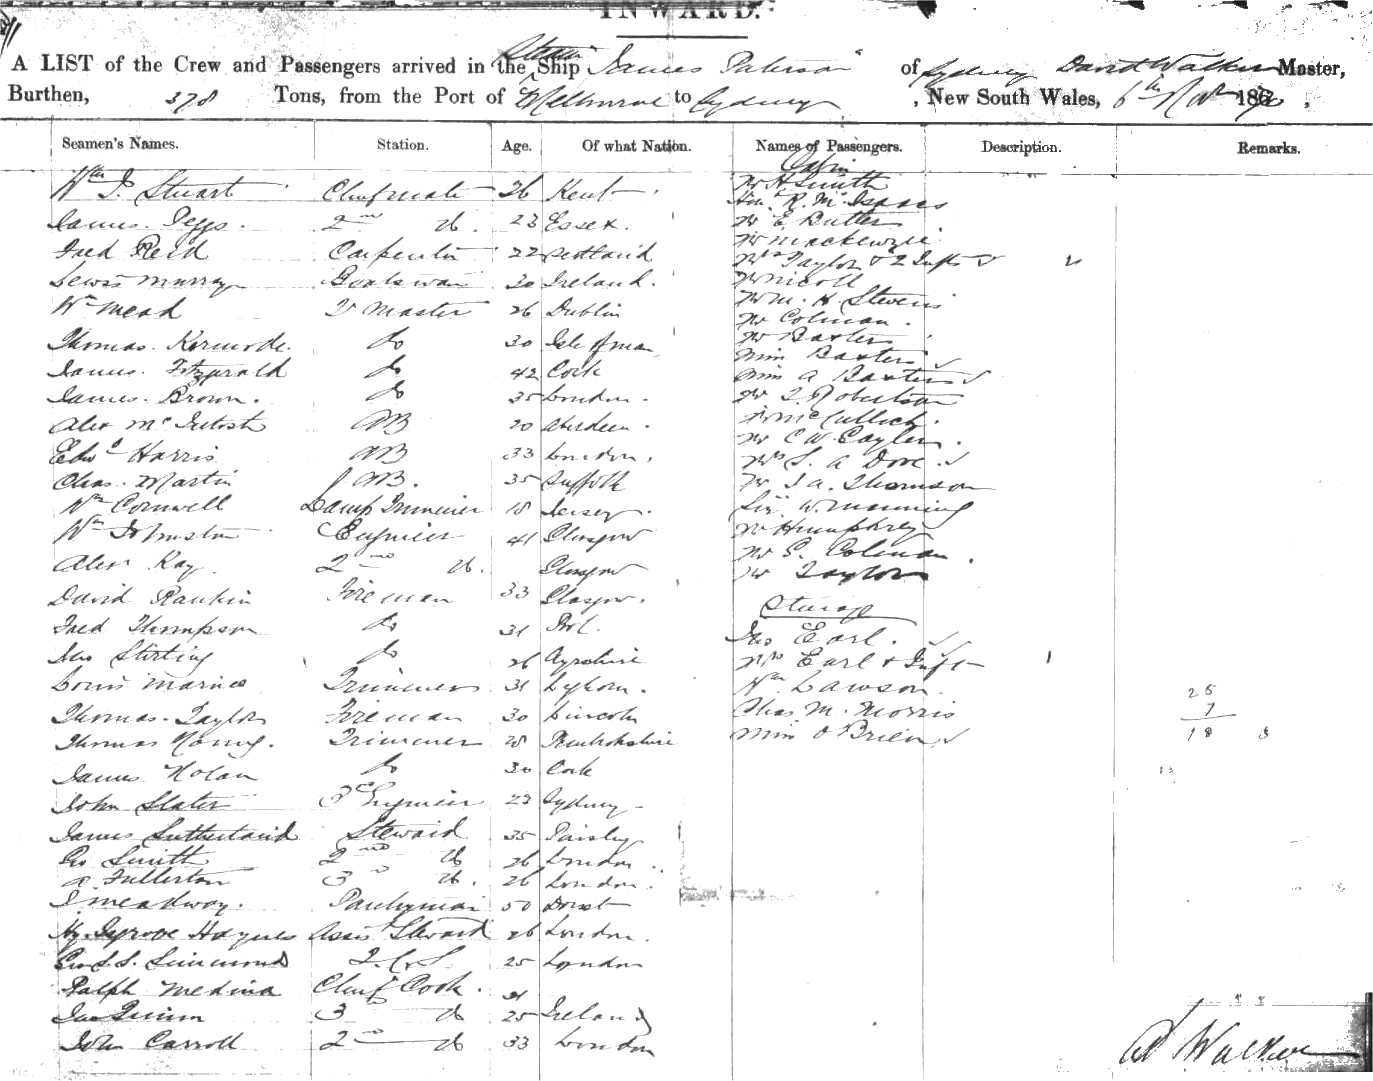 INWARD.
A LIST of the Crew and Passengers arrived in the Steam Ship James Paterson of Sydney David Walker Master,
Burthen, 378 Tons, from the Port of Melbourne to Sydney, New South Wales, 6th Novr 18
Seamen's Names. Station. Age. Of what Nation. Names of Passengers. Description. Remarks.
Cabin
Wm J. Stuart Chief mate 26 Kent Mr H Smith
Hon. R. M. Isaacs
James Jeggs. 2nd do. 23 Essex. Mr E Butler
Mr Mackenzie
Fred Reid Carpenter 22 Scotland Mrs Taylor & 2 Infts 2
Lewis Murray Boatswain 30 Ireland. Mr Nicoll
Wm Mead Qr Master 26 Dublin Mr M. H. Stevens
Mr Colman.
Thomas Kermode. do 30 Isle of man Mr Baxter
Miss Baxter
James Fitzgerald do 42 Cork Miss A Baxter
James Brown. do 35 London. Mr T. Robertson
Alex McIntosh AB 20 Aberdeen. Mr McCulloch.
Mr C W Cayler.
Edwd Harris AB 33 London. Mrs S. A Dove.
Chas. Martin AB. 35 Suffolk Mr J a. Thomson
Wm Cornwell Lamp Trimmer 18 Jersey. Sir W. Manning
Wm Johnston Engineer 41 Glasgow Mr Humphrey
Mr S. Colman.
Alex Kay 2nd do. Glasgow Mr Taylor
David Rankin Fireman 33 Glasgow. Steerage
Fred Thompson do 31 Jas Earl.
Stirling do 26 Ayrshire Mrs Earl & Inft 1
Louis Trimmer 31 Leghorn. Wm Lawson 25
Thomas Taylor Fireman 30 Lincoln Chas M. Morris 7
Thomas Trimmer 28 Pembrokshire Miss O'Brien 18 8
James Nolan do 30 Cork 13
John Slater 3rd Engineer 23 Sydney
James Sutherland Steward 35 Paisley
Geo Smith 2nd do 26 London
A Fullerton 3rd do. 26 London.
J Meadway. Pantryman 50 Dorset
Hy. Haynes Assist Steward 26 London.
Geo S. S. Simmonds 25 London
Ralph Medina Chief Cook. 21
Jas Quinn 3rd do 25 Ireland
John Carroll 2nd do 33 London
D Walker